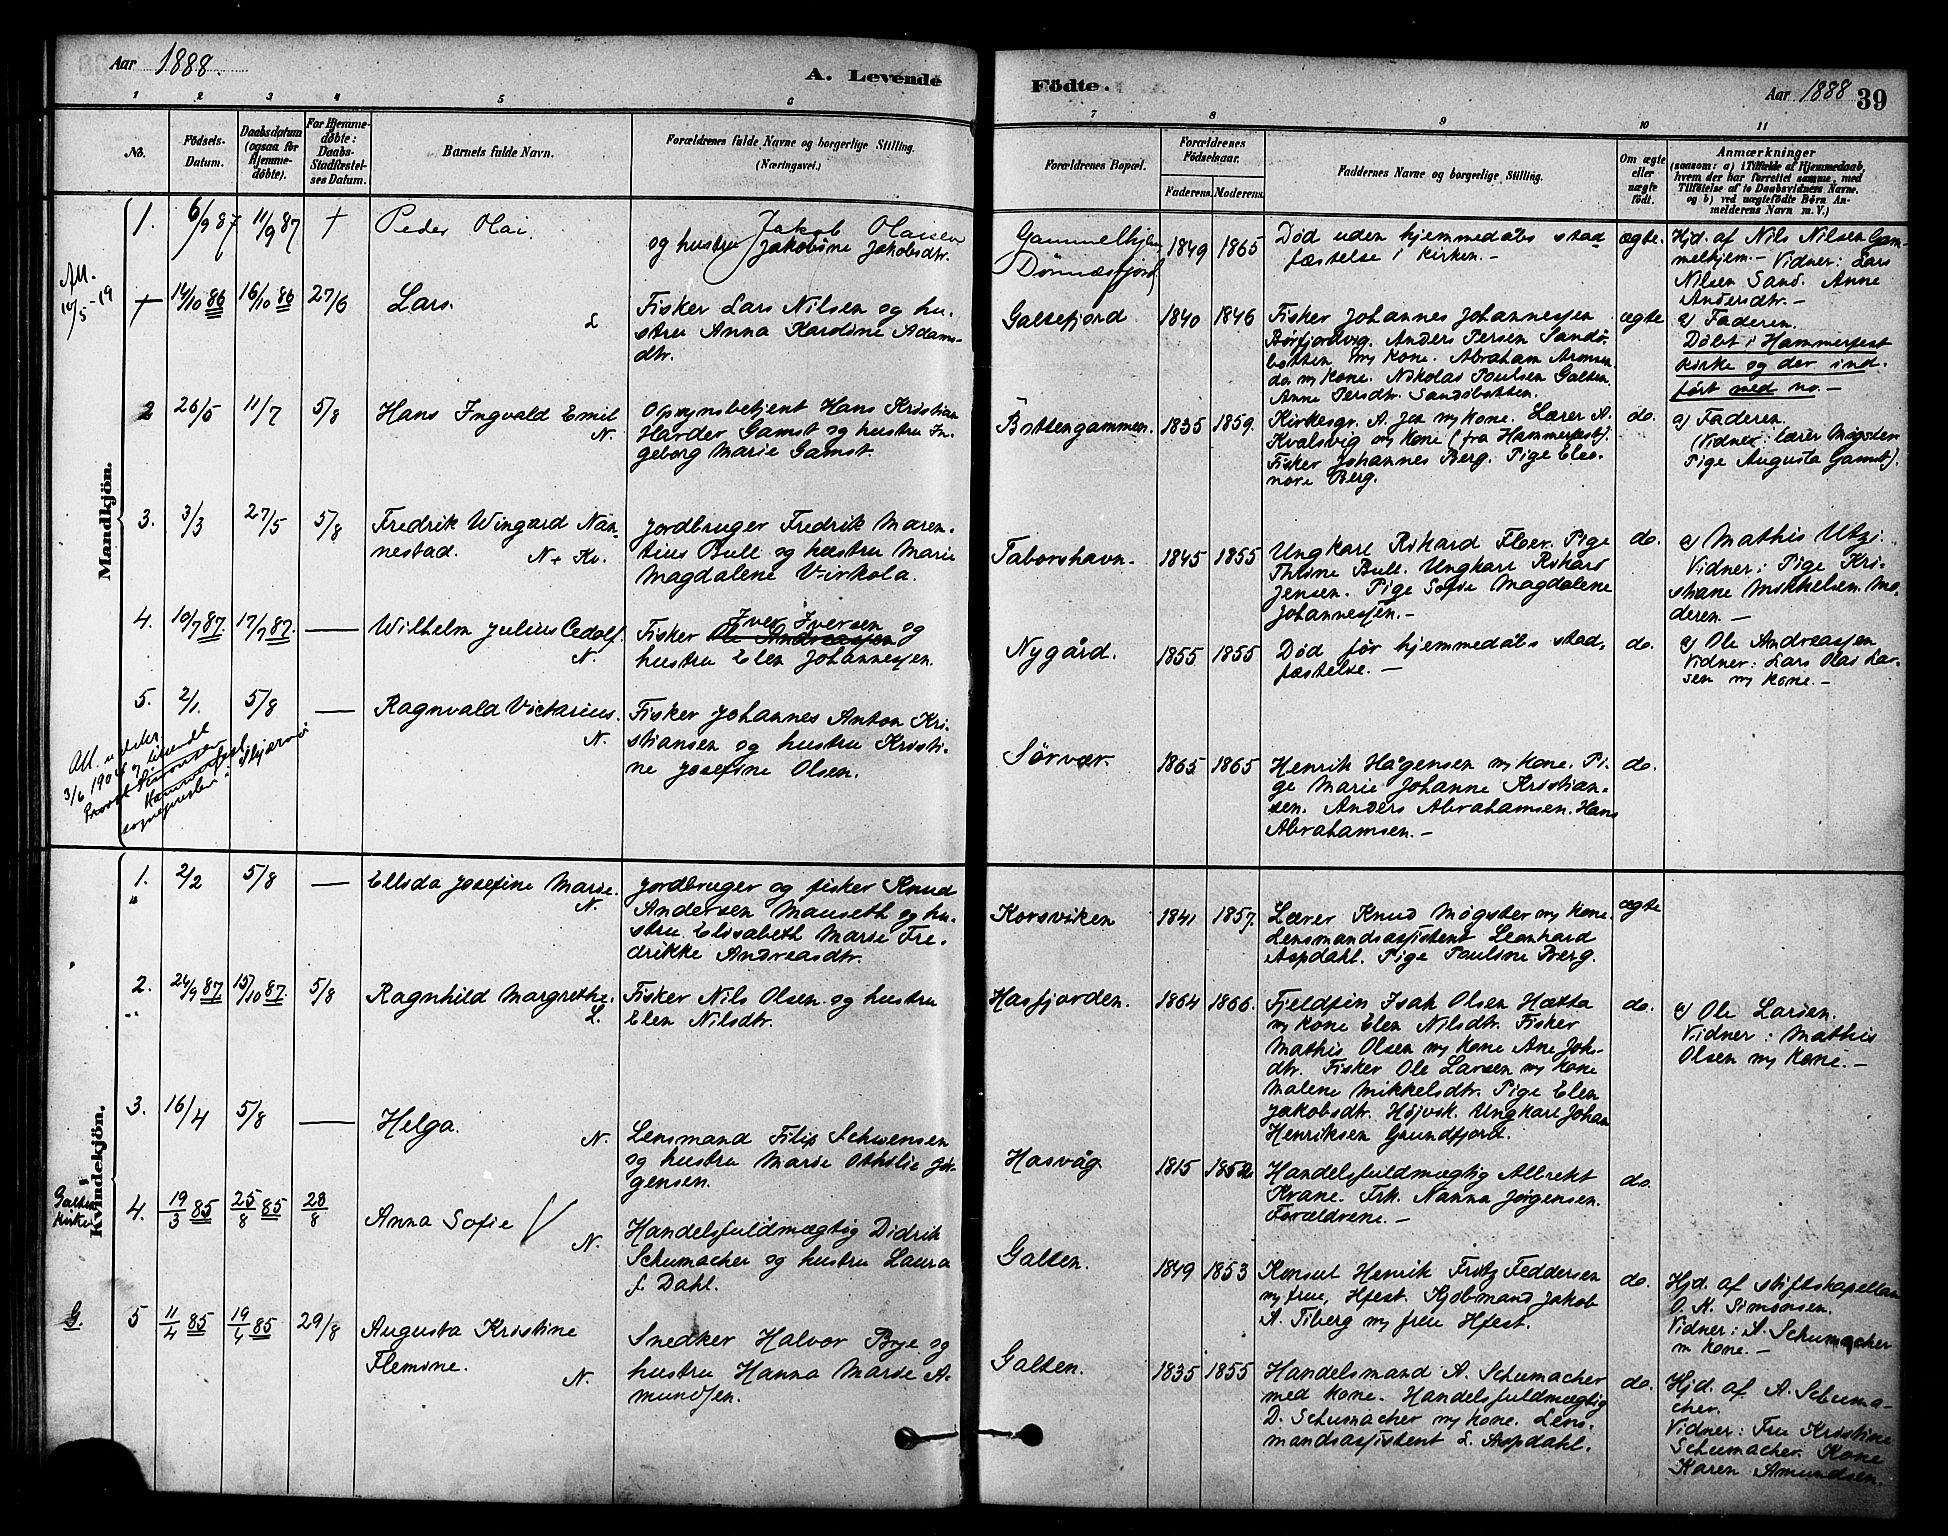 Aar 1888.
A. Levende
1 2 3 4 5 6
No.
Födsels-
Datum.
Daabsdatum
(ogsaa for
Hjemme-
døbte).
For Hjemme-
døbte:
Daabs-
Stadfæstel-
ses Datum.
Barnets fulde Navn.
Forældrenes fulde Navne og borgerlige Stilling.
(Næringsvei.)
Mandkjön.
1. 6/9 87 11/9 87 +
Peder Olai.
Jakob Olausen
og hustru Jakobine Jakobsdtr.
Att.
10/5-19
+ 14/10 86 16/10 86 27/6
Lars.
L
Fisker Lars Nilsen og hu-
stru Anna Karoline Adams-
dtr.
2 26/5 11/7 5/8
Hans Ingvald Emil
N.
Opsynsbetjent Hans Kristian
Harder Gamst og hustru In-
geborg Marie Gamst.
3. 3/3 27/5 5/8
Fredrik Wingard Nan-
nestad. N + Kv.
Jordbruger Fredrik Maren-
tius Bull og hustru Marie
Magdalene Virkola.
4. 10/7 87. 17/7 87. —
Wilhelm Julius Cedolf.
N.
Iver Iversen
Fisker Ole Andreassen og
hustru Elen Johannessen.
5. 2/1. 5/8 —
Ragnvald Victarius.
N.
Fisker Johannes Anton Kri-
stiansen og hustru Kristi-
ne Josefine Olsen.
3/6 1904
Kvindekjön.
1. 2/2 5/8 —
Ellida Josefine Marie.
N.
Jordbruger og fisker Knud
Andersen Mauseth og hu-
stru Elisabeth Marie Fre-
drikke Andreasdtr.
2. 24/9 87 15/10 87. 5/8
Ragnhild Margrethe.
L.
Fisker Nils Olsen og hustru
Elen Nilsdtr.
3. 16/4 5/8 —
Helga.
N.
Lensmand Filip Schwensen
og hustru Marie Othilie Jør-
gensen.
Galten
kirke
4. 19/3 85 25/8 85 28/8
Anna Sofie
N.
Handelsfuldmægtig Didrik
Schumacher og hustru Laura
f. Dahl.
G.
5 11/4 85 19/4 85 29/8
Augusta Kristine
Flemine.
N.
Snedker Halvor Brye og
hustru Hanna Marie A-
mundsen.
Födte.
Aar 1888 39
7 8 9 10 11
Forældrenes Bopæl.
Forældrenes
Födselsaar.
Faderens. Moderens.
Faddernes Navne og borgerlige Stilling.
Om ægte
eller
uægte
födt.
Anmærkninger
(saasom: a) i Tilfælde af Hjemmedaab,
hvem der har forrettet samme, med
Tilföielse af to Daabsvidners Navne,
og b) ved uægtefödte Börn An-
melderens Navn m. V.)
Gammelhjem
Dönnæsfjord
1849 1865
Død uden hjemmedåbs stad-
fæstelse i kirken. —
ægte.
Hjd. af Nils Nilsen Gam-
melhjem. — Vidner: Lars
Nilsen Sand. Anne
Andersdtr. —
Galtefjord
1840 1846
Fisker Johannes Johannessen
Børfjordvig. Anders Persen Sandø-
botten m/ kone. Abraham Aronsen
do m/ kone. Nikolai Poulsen Galten.
Anne Persdtr. Sandøbotten.
ægte
a) Faderen.
Døbt i Hammerfest
kirke og der ind-
ført med no. —
Bottengammen.
1835 1859.
Kirkesgr. A. Jes m/ kone. Lærer A.
Kvalsvig m/ kone (fra Hammerfest).
Fisker Johannes Berg. Pige Eleo-
nore Berg.
do.
a) Faderen
(Vidner: lærer Møgster
Pige Augusta Gamst).
Taborshavn.
1845 1855
Ungkarl Rikard Floer. Pige
Thrine Bull. Ungkarl Rikard
Jensen. Pige Sofie Magdalene
Johannessen. —
do.
a) Mathis Utzi.
Vidner: Pige Kri-
stiane Mikkelsen. Mo-
deren. —
Nygård.
1855 1855
Død før hjemmedåbs stad-
fæstelse. —
do.
a) Ole Andreassen
Vidner: Lars Olai Lar-
sen m/ kone. —
Sørvær.
1865 1865
Henrik Hågensen m/ kone. Pi-
ge Marie Johanne Kristian-
sen. Anders Abrahamsen. Hans
Abrahamsen. —
do.
Korsviken
1841 1857.
Lærer Knud Møgster m/ kone.
Lensmandsassistent Leonhard
Aspdahl. Pige Pauline Berg.
ægte
Hasfjorden.
1864 1866.
Fjeldfin Isak Olsen Hætta
m/ kone Elen Nilsdtr. Fisker
Mathis Olsen m/ kone Ane Joh-
dtr. Fisker Ole Larsen m/ kone
Malene Mikkelsdtr. Pige Elen
Jakobsdtr. Højvik. Ungkarl Johan
Henriksen Grundfjord.
do.
a) Ole Larsen.
Vidner: Mathis
Olsen m/ kone. —
Hasvåg
1815 1852
Handelsfuldmægtig Albrekt
Krane. Frk. Nanna Jørgensen.
Forældrene. —
do.
Galten.
1849 1853
Konsul Henrik Fritz Feddersen
m/ frue, Hfest. Kjøbmand Jakob
A. Fiberg m/ frue Hfest.
do.
Hjd. af stiftskapellan
O. K. Simonsen.
Vidner: A. Schumacher
m kone. —
Galten.
1835 1855
Handelsmand A. Schumacher
med kone. Handelsfuldmægtig
D. Schumacher m/ kone. Lens-
mandsassistent L. Aspdahl.
do.
Hjd. af A. Schuma-
cher.
Vidner: Fru Kristine
Schumacher. Kone
Karen Amundsen.